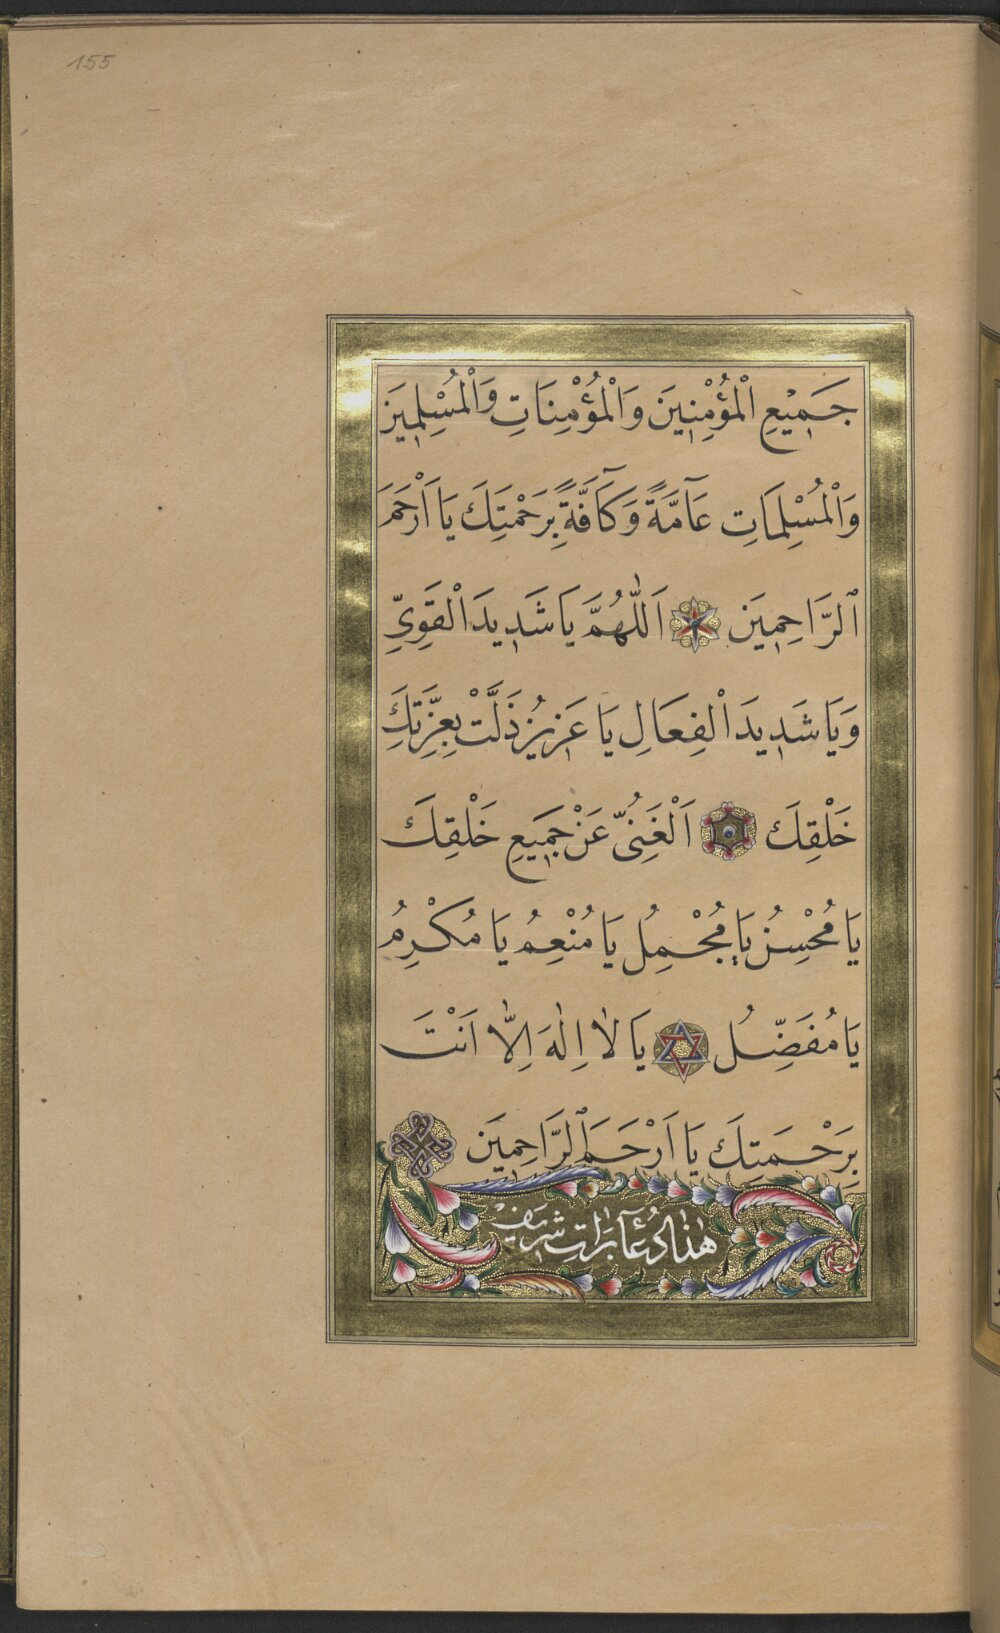 155
جَمِيْعِ الْمُؤْمِنِينَ وَالْمُؤْمِنَاتِ وَالْمُسْلِمِينَ
وَالْمُسْلِمَاتِ عَآمَّةً وَكَآفَّةً بِرَحْمَتِكَ يَا اَرْحَمَ
الرَّاحِمِينَ اَللّٰهُمَّ يَا شَدِيدَ الْقَوِيِّ
وَيَا شَدِيدَ الْفِعَالِ يَا عَزِيزُ ذَلَّتْ بِعِزَّتِكَ
خَلْقِكَ اَلْغَنِىُّ عَنْ جَمِيعِ خَلْقِكَ
يَا مُحْسِنُ يَا مُجْمِلُ يَا مُنْعِمُ يَا مُكْرِمُ
يَا مُفَضِّلُ يَا لَا اِلٰهَ اِلَّا اَنْتَ
بِرَحْمَتِكَ يَا اَرْحَمَ الرَّاحِمِينَ
هٰذَا دُعَآ بَرَات شَرِيفْ